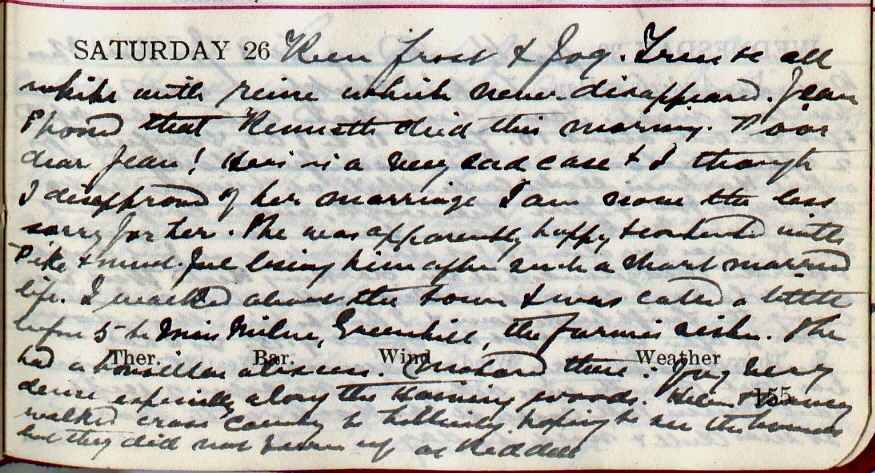 SATURDAY 26 Keen frost & fog. Trees all
white with rime which never disappeared. Jean
phoned that Kenneth died this morning. Poor
dear Jean! Hers is a very sad case & I though
I disapproved of her marriage I am none the less
sorry for her. She was apparently happy & contented with
& must feel losing him after such a short married
life. I walked about the town & was called a little
before 5 to Miss Milne, Greenhill, the farmer's sister. She
Ther. Bar. Wind Weather
had a tonsillar abscess. Motored there. Fog very
155
dense especially along the woods. Helen &
walked cross country to hoping to see the hounds
but they did not turn up at